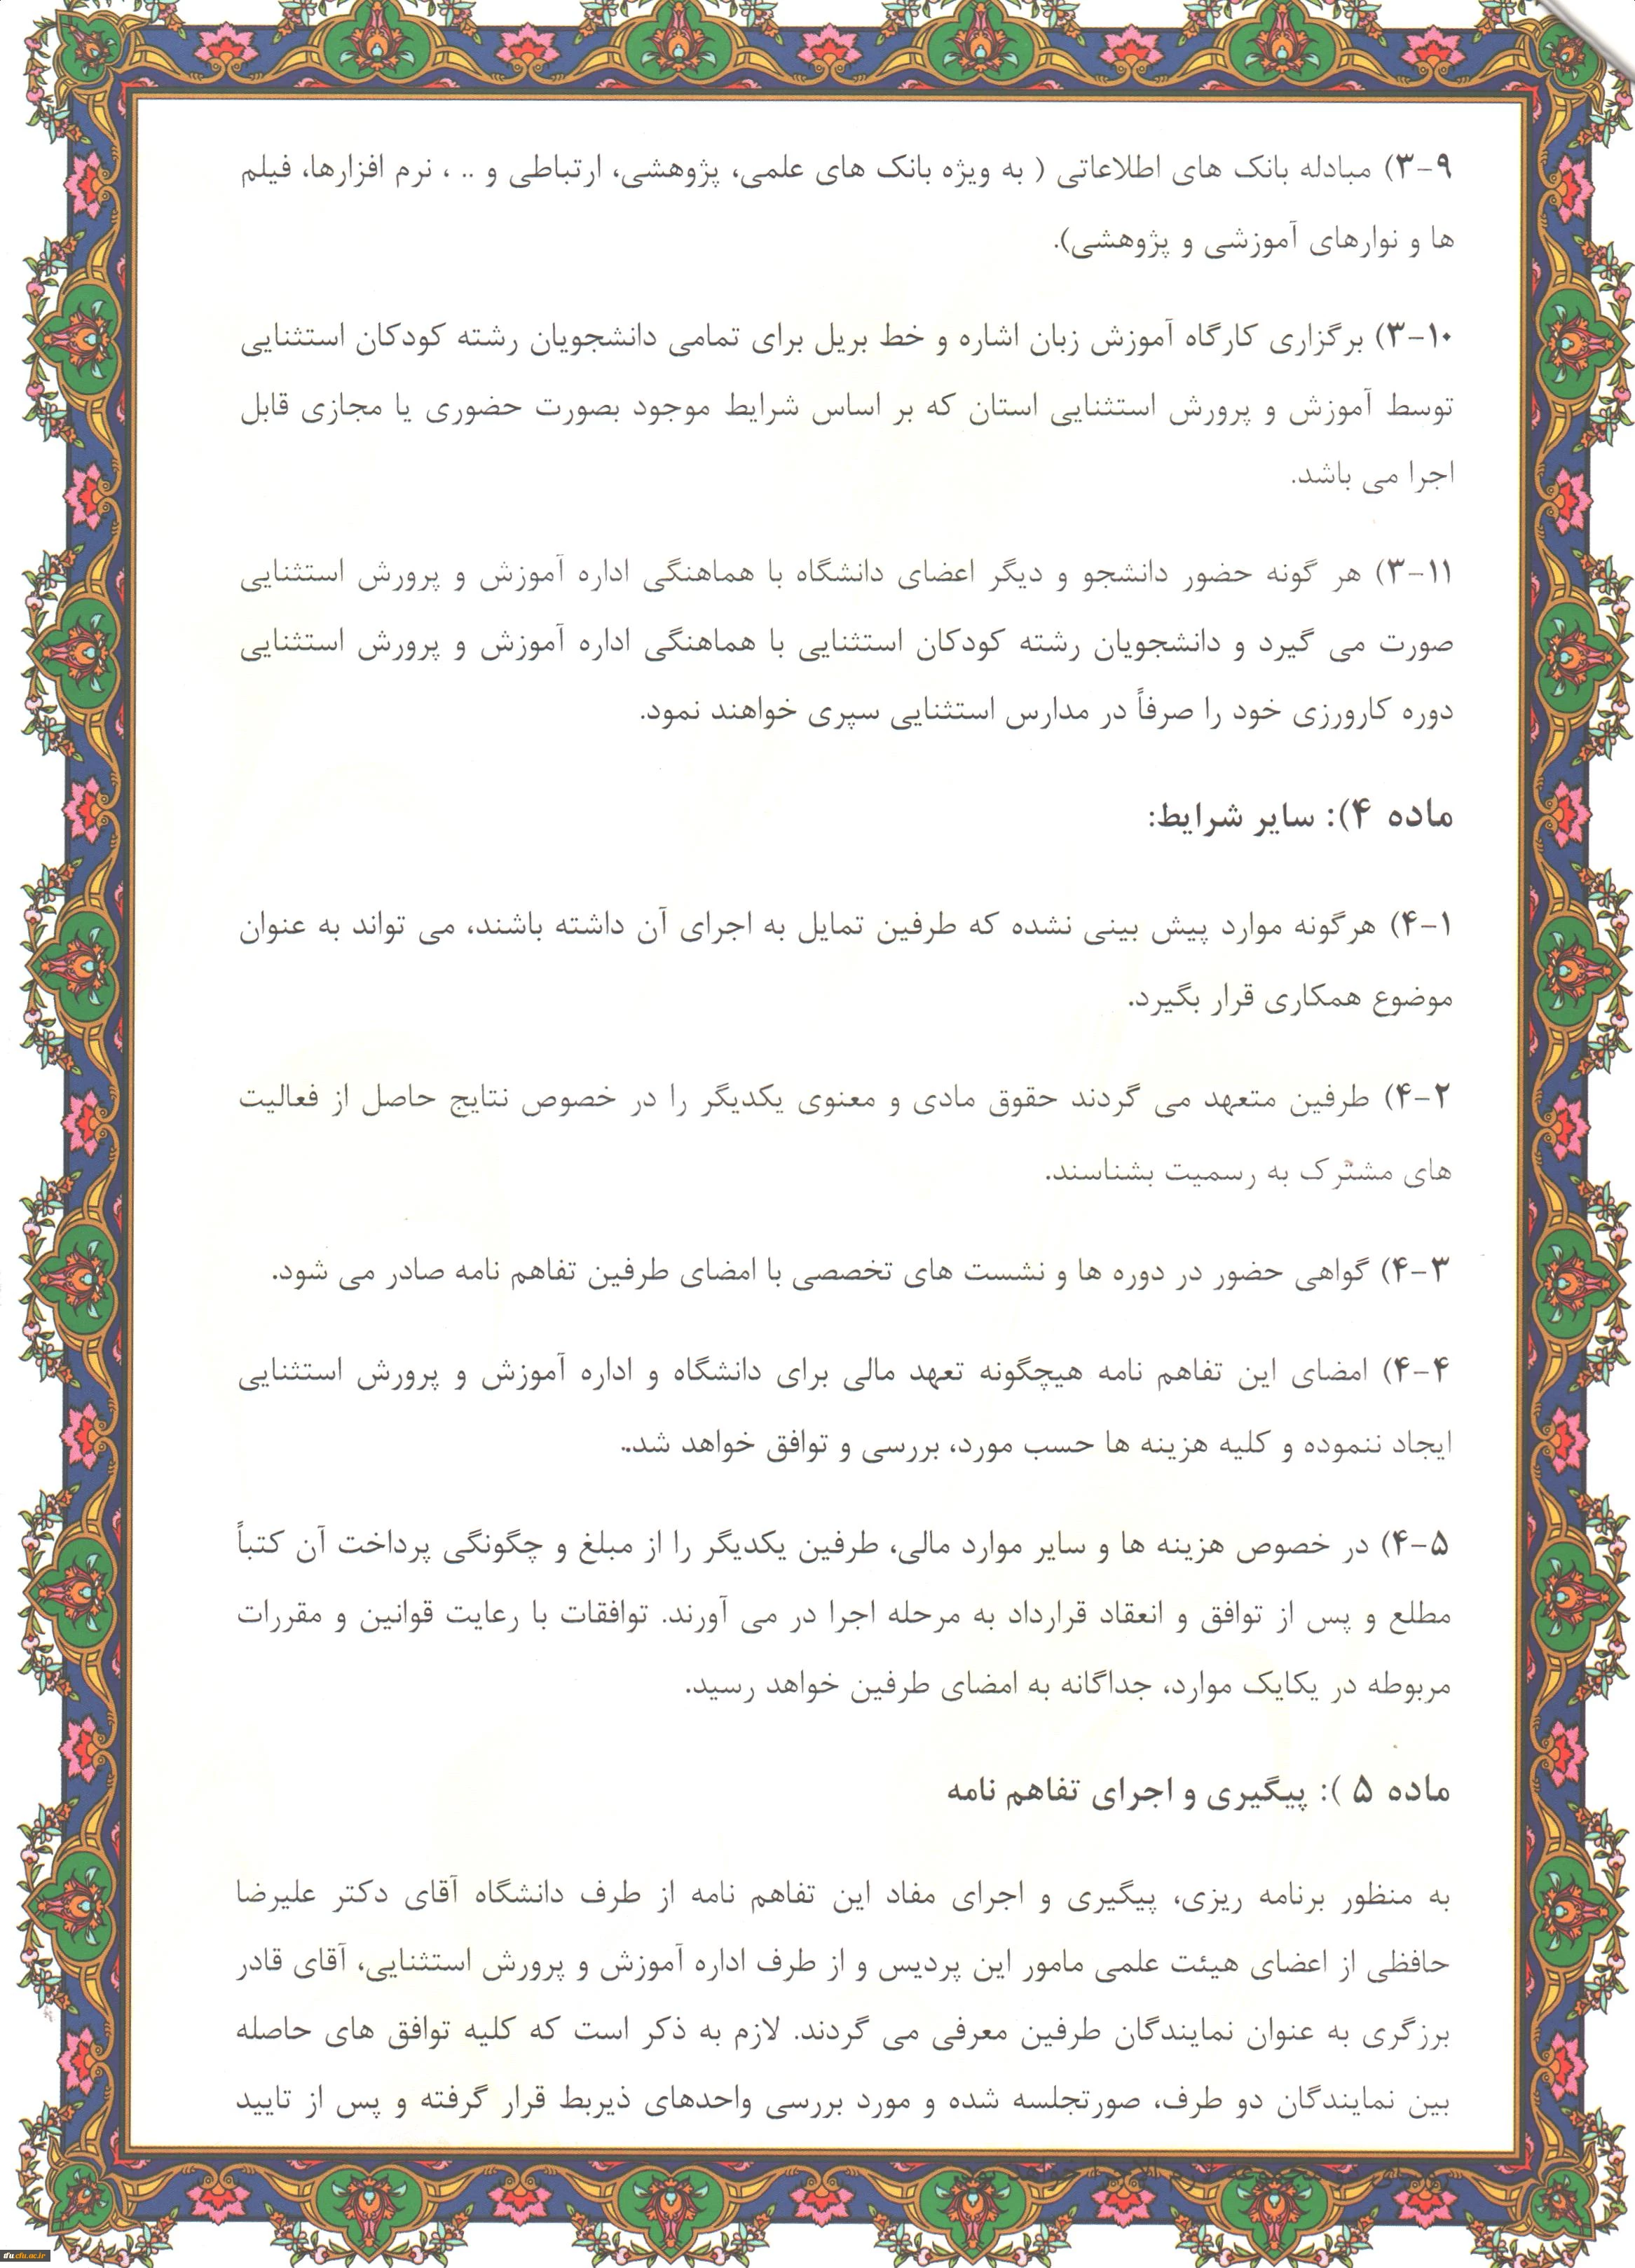 ۳-۹) مبادله بانک های اطلاعاتی ( به ویژه بانک های علمی، پژوهشی، ارتباطی و .. ، نرم افزارها، فیلم
ها و نوارهای آموزشی و پژوهشی).
۳-۱۰) برگزاری کارگاه آموزش زبان اشاره و خط بریل برای تمامی دانشجویان رشته کودکان استثنایی
توسط آموزش و پرورش استثنایی استان که بر اساس شرایط موجود بصورت حضوری یا مجازی قابل
اجرا می باشد.
۳-۱۱) هر گونه حضور دانشجو و دیگر اعضای دانشگاه با هماهنگی اداره آموزش و پرورش استثنایی
صورت می گیرد و دانشجویان رشته کودکان استثنایی با هماهنگی اداره آموزش و پرورش استثنایی
دوره کارورزی خود را صرفاً در مدارس استثنایی سپری خواهند نمود.
ماده ۴): سایر شرایط:
۴-۱) هرگونه موارد پیش بینی نشده که طرفین تمایل به اجرای آن داشته باشند، می تواند به عنوان
موضوع همکاری قرار بگیرد.
۴-۲) طرفین متعهد می گردند حقوق مادی و معنوی یکدیگر را در خصوص نتایج حاصل از فعالیت
های مشترک به رسمیت بشناسند.
۴-۳) گواهی حضور در دوره ها و نشست های تخصصی با امضای طرفین تفاهم نامه صادر می شود.
۴-۴) امضای این تفاهم نامه هیچگونه تعهد مالی برای دانشگاه و اداره آموزش و پرورش استثنایی
ایجاد ننموده و کلیه هزینه ها حسب مورد، بررسی و توافق خواهد شد..
۴-۵) در خصوص هزینه ها و سایر موارد مالی، طرفین یکدیگر را از مبلغ و چگونگی پرداخت آن کتباً
مطلع و پس از توافق و انعقاد قرارداد به مرحله اجرا در می آورند. توافقات با رعایت قوانین و مقررات
مربوطه در یکایک موارد، جداگانه به امضای طرفین خواهد رسید.
ماده ۵ ): پیگیری و اجرای تفاهم نامه
به منظور برنامه ریزی، پیگیری و اجرای مفاد این تفاهم نامه از طرف دانشگاه آقای دکتر علیرضا
حافظی از اعضای هیئت علمی مامور این پردیس و از طرف اداره آموزش و پرورش استثنایی، آقای قادر
برزگری به عنوان نمایندگان طرفین معرفی می گردند. لازم به ذکر است که کلیه توافق های حاصله
بین نمایندگان دو طرف، صورتجلسه شده و مورد بررسی واحدهای ذیربط قرار گرفته و پس از تایید